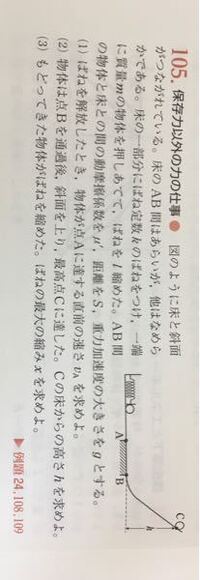 105. 保存力以外の力の仕事● 図のように床と斜面
がつながれている。床のAB間はあらいが、他はなめら
かである。床の一部分にばね定数kのばねをつけ、一端
に質量mの物体を押しあてて、ばねをl縮めた。AB間
の物体と床との間の動摩擦係数をμ'、距離をS、重力加速度の大きさをgとする。
(1) ばねを解放したとき、物体が点Aに達する直前の速さvAを求めよ。
(2) 物体は点Bを通過後、斜面を上り、最高点Cに達した。Cの床からの高さhを求めよ。
(3) もどってきた物体がばねを縮めた。ばねの最大の縮みxを求めよ。
▶例題24,108,109
A
B
C
h